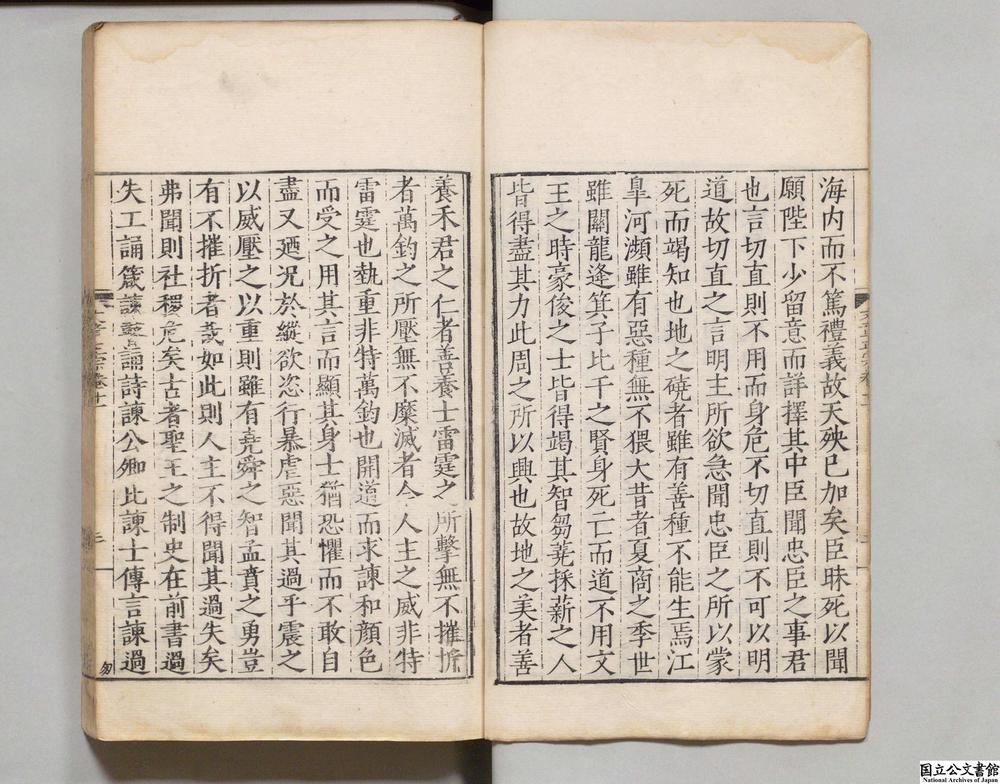 海内而不篤禮義故天殃已加矣臣昧死以聞
願陛下少留意而詳擇其中臣聞忠臣之事君
也言切直則不用而身危不切直則不可以明
道故切直之言明主所欲急聞忠臣之所以蒙
死而竭知也地之磽者雖有善種不能生焉江
臯河瀕雖有惡種無不猥大昔者夏商之季世
雖關龍逢箕子比干之賢身死亡而道不用文
王之時豪俊之士皆得竭其智芻蕘採薪之人
皆得盡其力此周之所以興也故地之美者善
養禾君之仁者善養士雷霆之所擊無不摧折
者萬鈞之所壓無不糜滅者今人主之威非特
雷霆也埶重非特萬鈞也開道而求諫和顏色
而受之用其言而顯其身士猶恐懼而不敢自
盡又廼况於縱欲恣行暴虐惡聞其過乎震之
以威壓之以重則雖有堯舜之智孟賁之勇豈
有不摧折者哉如此則人主不得聞其過失矣
弗聞則社稷危矣古者聖王之制史在前書過
失工誦箴諫瞽誦詩諫公卿比諫士傳言諫過
三
國立公文書館
National Archives of Japan